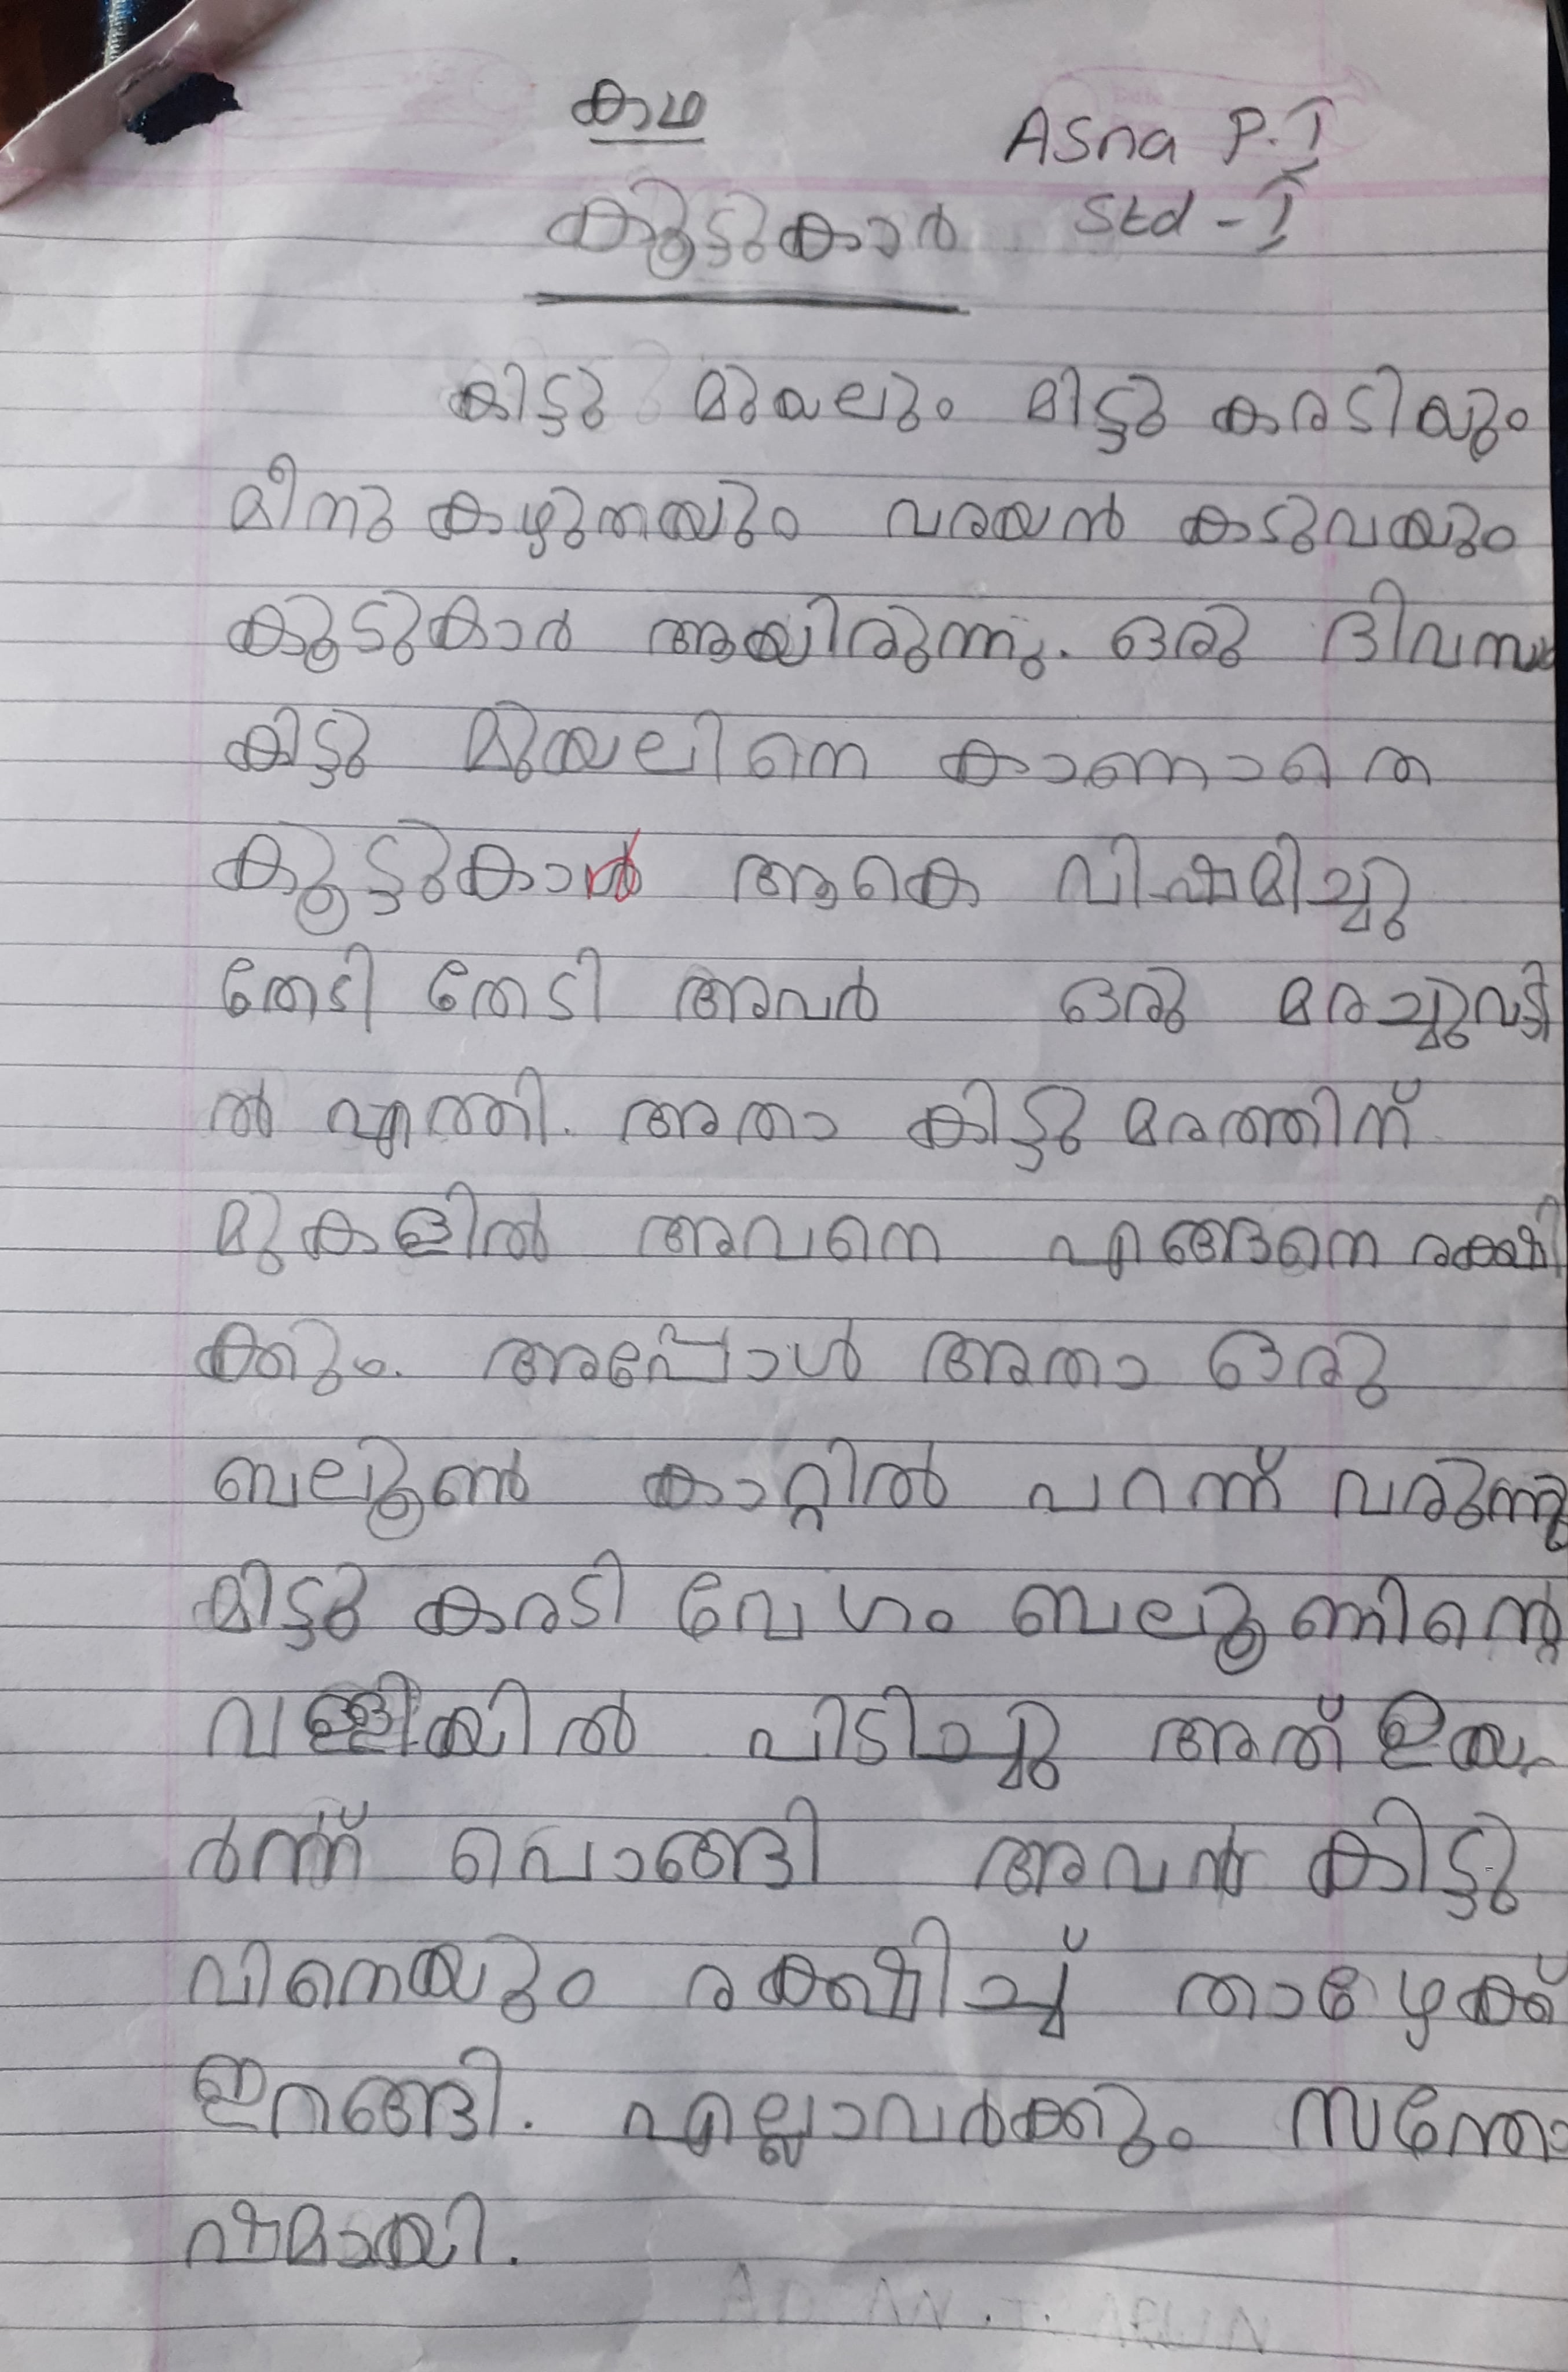 കഥ
Asna P.I
Std - I
കൂട്ടുകാർ
കിട്ടു മുയലും മിട്ടു കരടിയും
മീനു കഴുതയും വരയൻ കടുവയും
കൂട്ടുകാർ ആയിരുന്നു. ഒരു ദിവസം
കിട്ടു മുയലിനെ കാണാതെ
കൂട്ടുകാർ ആകെ വിഷമിച്ചു
തേടി തേടി അവർ ഒരു മരച്ചുവട്ടി
ൽ എത്തി. അതാ കിട്ടു മരത്തിന്
മുകളിൽ അവനെ എങ്ങനെ രക്ഷി
ക്കും. അപ്പോൾ അതാ ഒരു
ബലൂൺ കാറ്റിൽ പറന്ന് വരുന്നു
മിട്ടു കരടി വേഗം ബലൂണിന്റെ
വള്ളിയിൽ പിടിച്ചു അത് ഉയ
ർന്ന് പൊങ്ങി അവൻ കിട്ടു
വിനെയും രക്ഷിച്ച് താഴേക്ക്
ഇറങ്ങി. എല്ലാവർക്കും സന്തോ
ഷമായി.